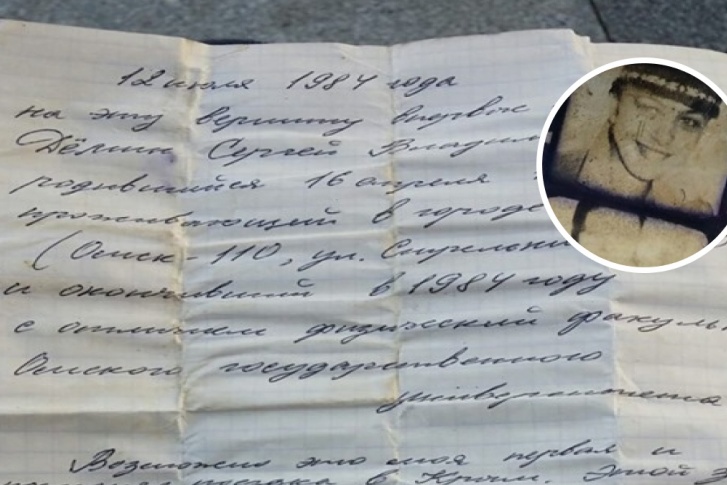 12 июля 1984 года
на эту вершину впервые
Дёмин Сергей Владим
родившийся 16 апреля
проживающий в городе
(Омск-110, ул. Стрельни
и окончивший в 1984 году
с отличием физический факуль
Омского государственного
университета
Возможно это моя первая и
поездка в Крым. Этой з